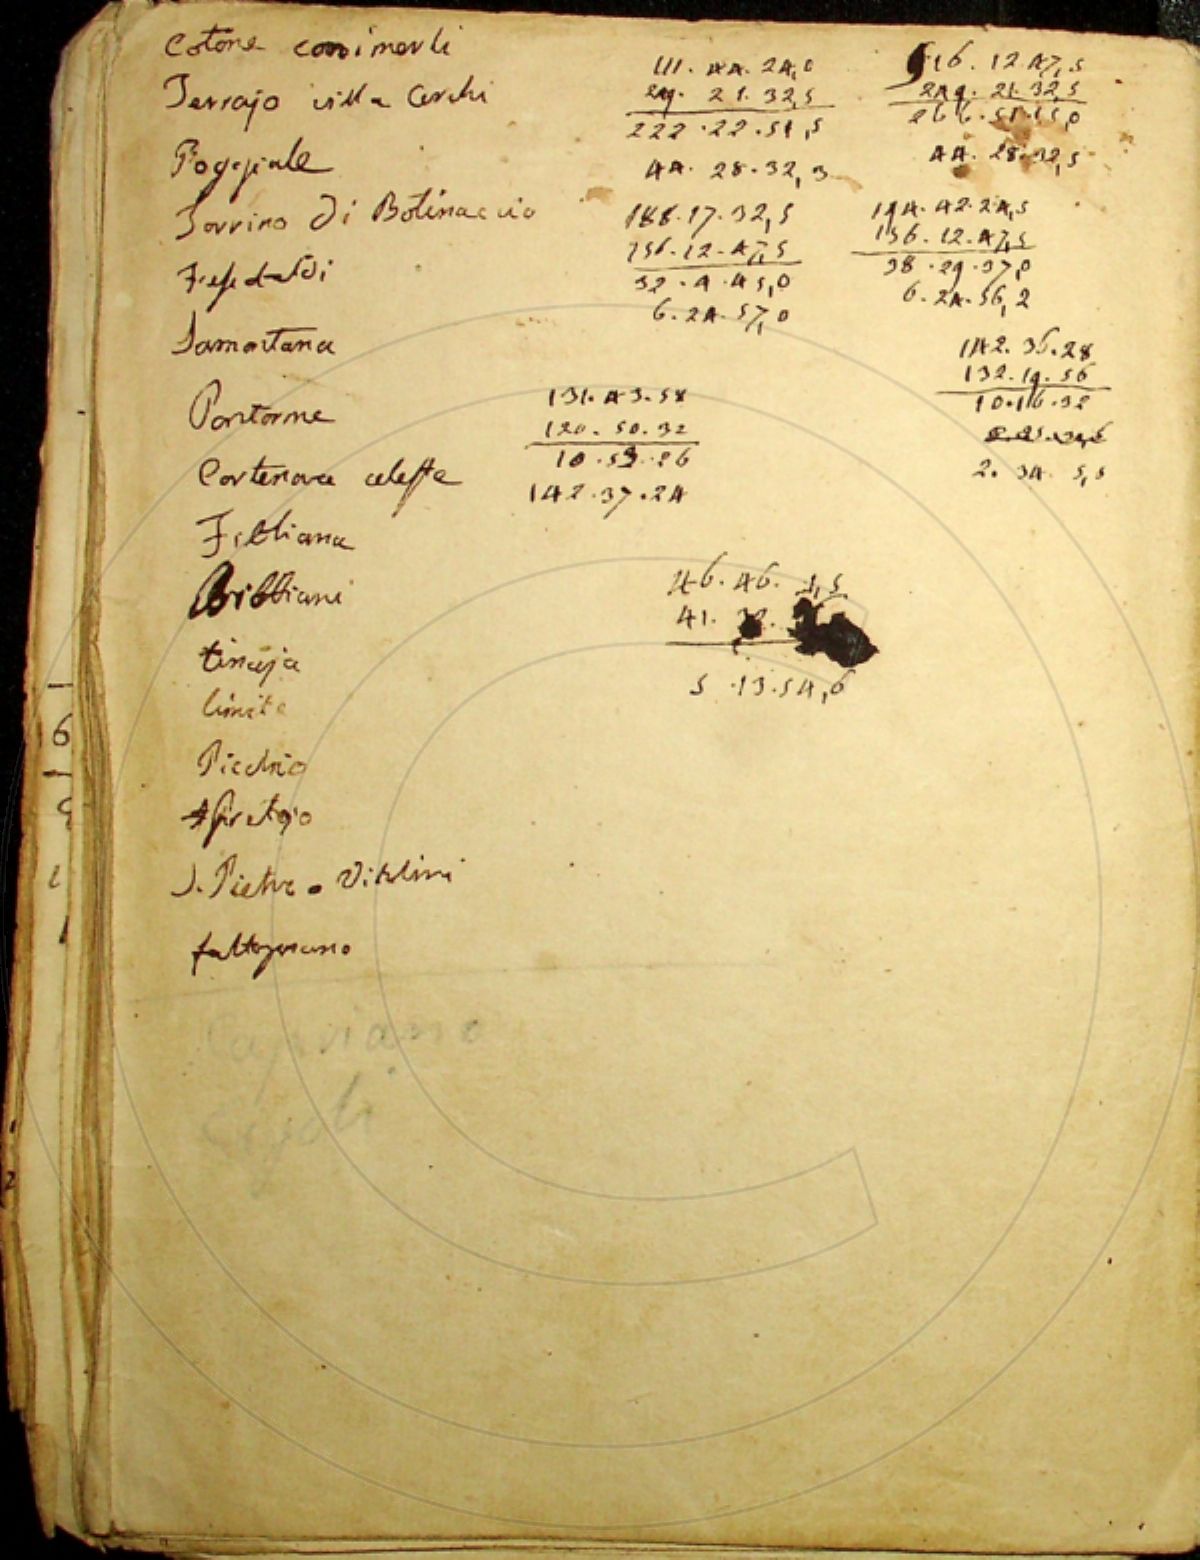 Cotone
Terrajo villa Cerchi
Poggiale
Torrino di Botinaccio
Samontana
Pontorme
Cortenova celeste
Fibbiana
Bibbiani
tinaja
limite
Picchio
Spretojo
S. Pietro a Vitolini
faltognano
Capriano
Cigoli
111. 44. 24,0
21. 32,5
222. 22. 51,5
44. 28. 32, 3
188. 17. 32,5
156. 12. 47,5
32. 4. 45,0
6. 24. 57,0
16. 12 47,5
249. 21. 32,5
266. 51. 15,0
44. 28. 32,5
194. 42. 24,5
156. 12. 47,5
38. 29. 37,0
6. 24. 56, 2
142. 36. 28
132. 19. 56
10. 16. 32
2. 34. 5,5
131. 43. 58
120. 50. 32
10. 53. 26
142. 37. 24
46. 46. 1,5
41.
5. 13. 54,6
6